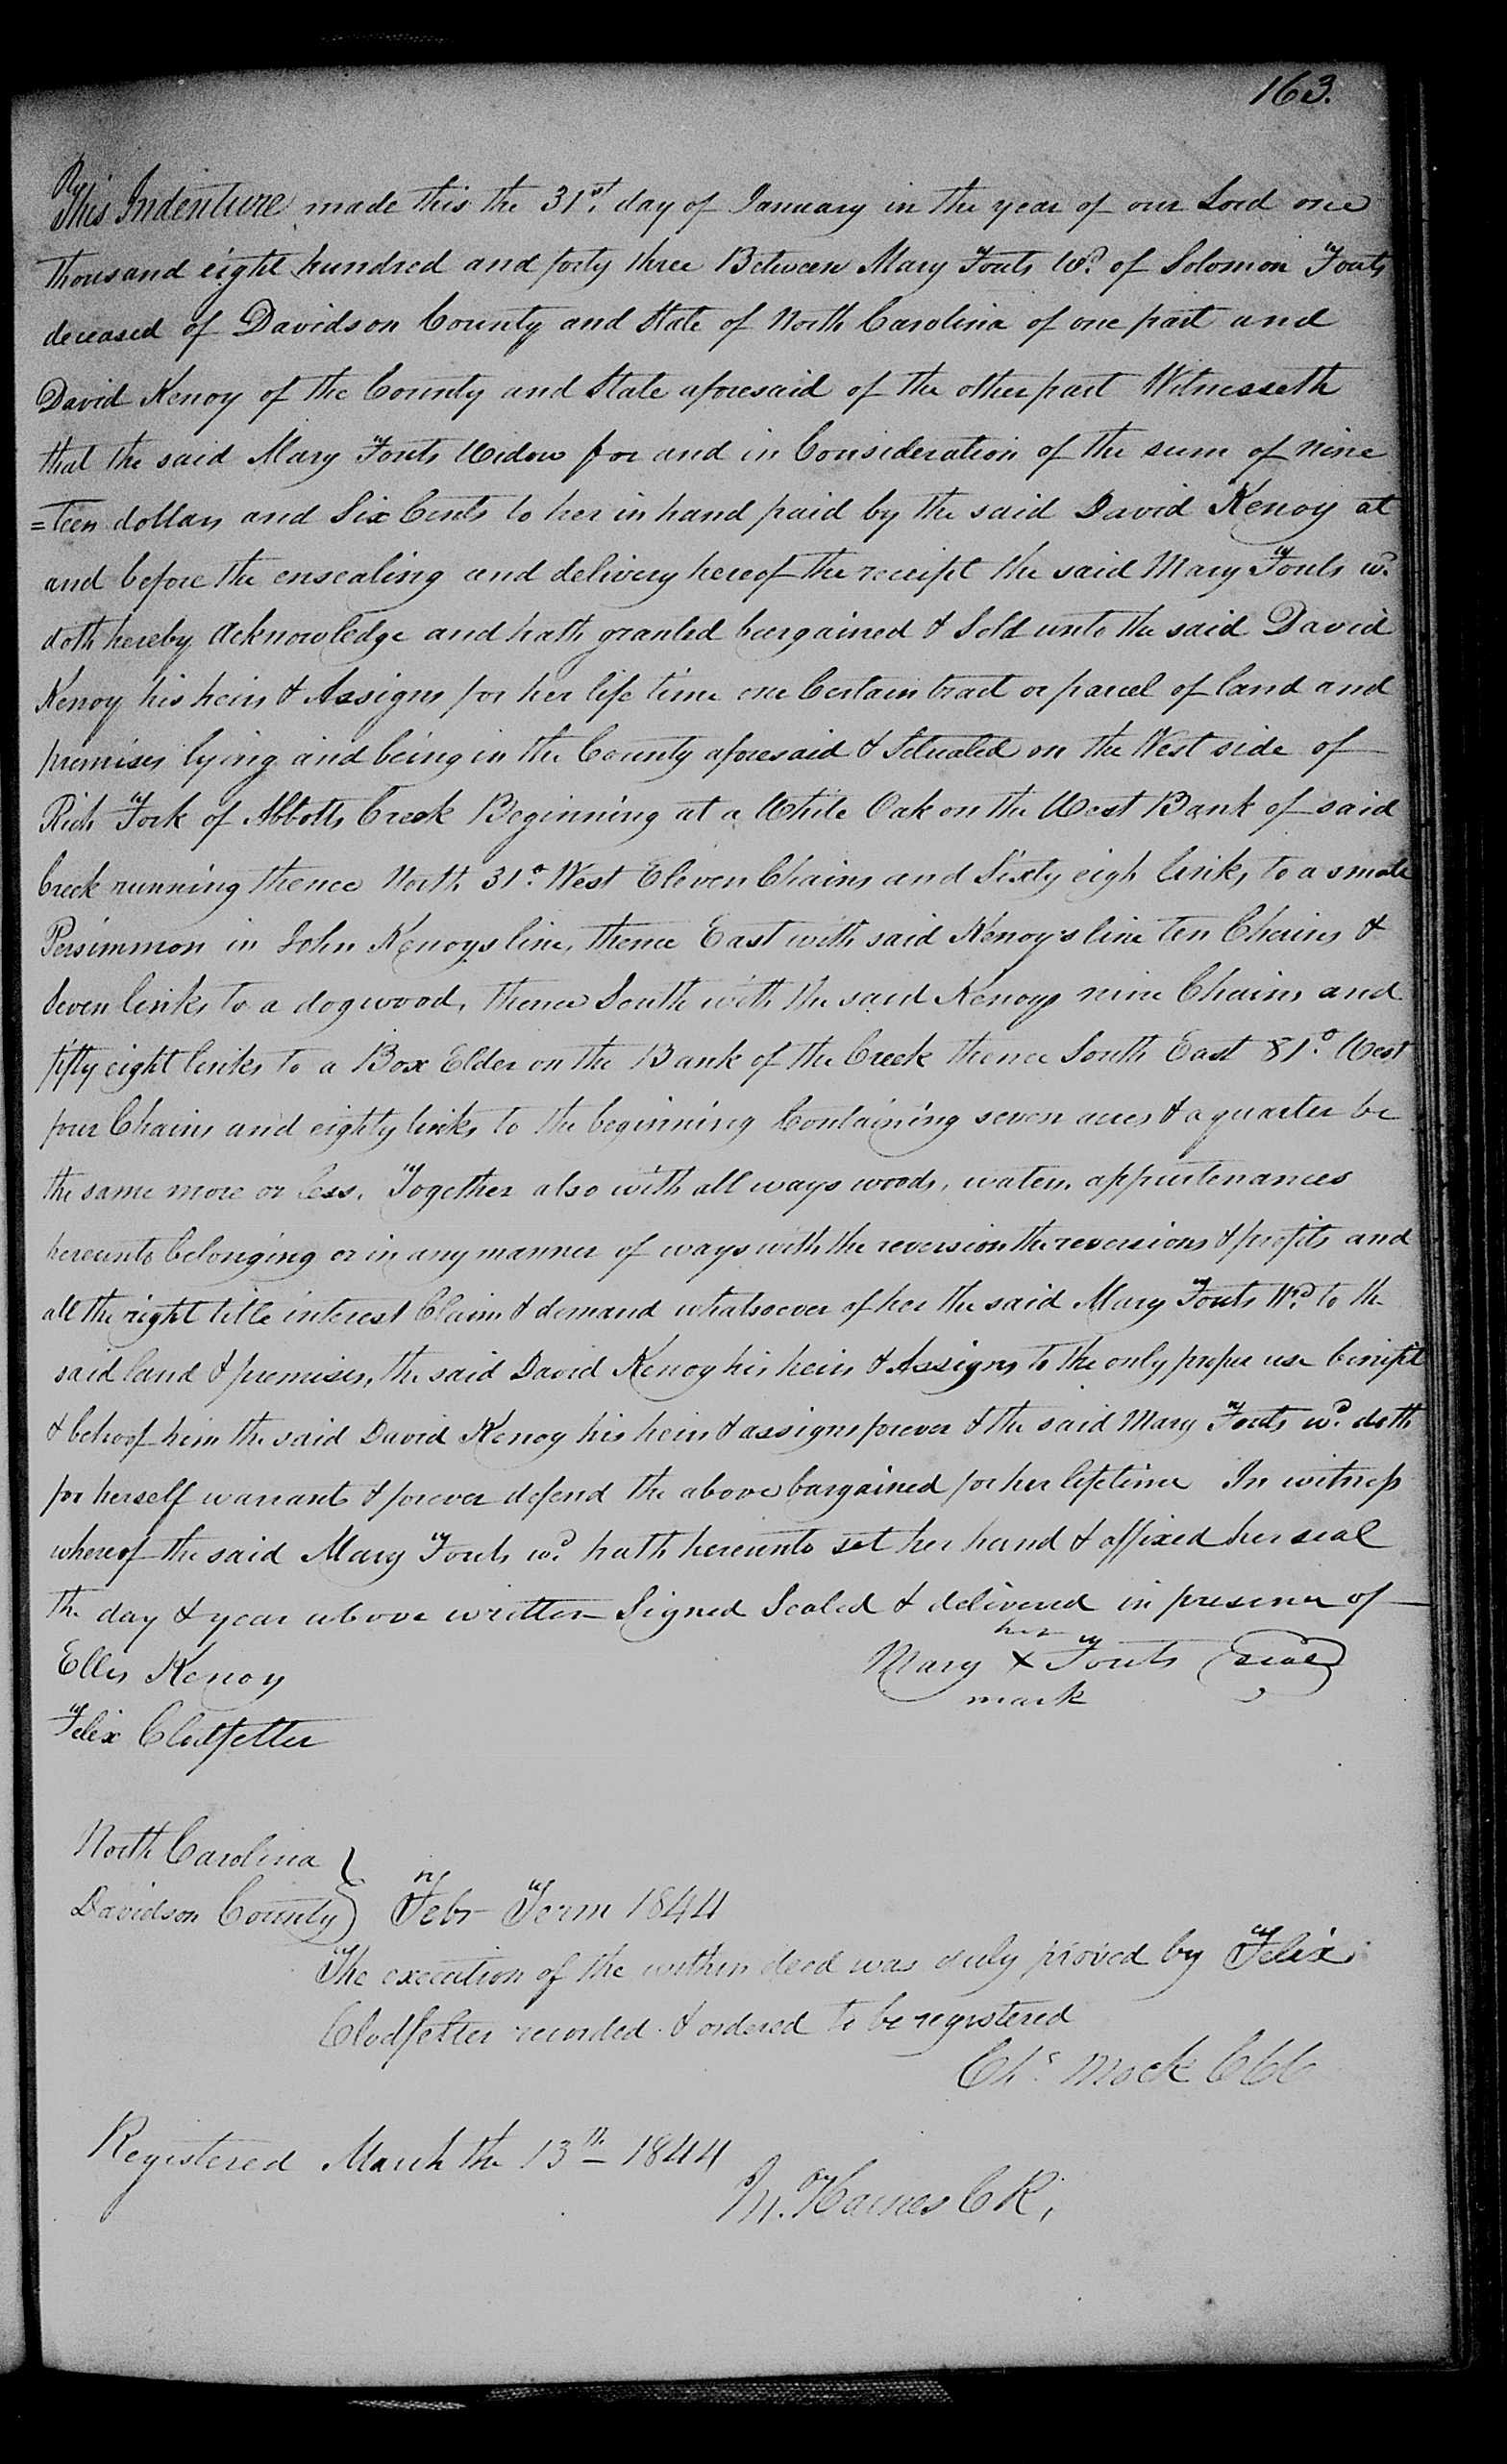 163.
This Indenture made this the 31st. day of January in the year of our Lord one
thousand eight hundred and forty three Between Mary Fouts Wd. of Solomon Fouts
deceased of Davidson County and State of North Carolina of one part and
David Kenoy of the County and State aforesaid of the other part Witnesseth
that the said Mary Fouts Widow for and in Consideration of the sum of nine
=teen dollars and Six Cents to her in hand paid by the said David Kenoy at
and before the ensealing and delivery hereof the receipt the said Mary Fouts wd.
doth hereby Acknowledge and hath granted bargained & Sold unto the said David
Kenoy his heirs & Assigns for her life time one Certain tract or parcel of land and
premises lying and being in the County aforesaid & Situated on the West side of
Rich Fork of Abbotts Creek Beginning at a White Oak on the West Bank of said
Creek running thence North 31° West Eleven Chains and Sixty eigh links to a smale
Persimmon in John Kenoys line, thence East with said Kenoy's line ten Chains &
Seven links to a dogwood, thence South with the said Kenoys nine Chains and
fifty eight links to a Box Elder on the Bank of the Creek thence South East 81° West
four Chains and eighty links to the beginning Containing seven acres & a quarter be
the same more or less. Together also with all ways woods, waters, appurtenances
hereunto belonging or in any manner of ways with the reversion the reversions & profits and
all the right title interest Claim & demand whatsoever of her the said Mary Fouts Wd. to the
said land & premises, the said David Kenoy his heirs & Assigns to the only proper use benifit
& behoof him the said David Kenoy his heirs & assigns forever & the said Mary Fouts wd. doth
for herself warrant & forever defend the above bargained for her lifetime In witness
whereof the said Mary Fouts wd. hath hereunto set her hand & affixed her seal
the day & year above written Signed Sealed & delivered in presence of
her
Ellis Kenoy Mary X Fouts (seal)
mark
Felix Clodfelter
North Carolina }
Davidson County } Febr Term 1844
The execution of the within deed was duly proved by Felix
Clodfelter recorded & ordered to be registered
Chs. Mock CCC
Registered March the 13th 1844
M. Haines C R,